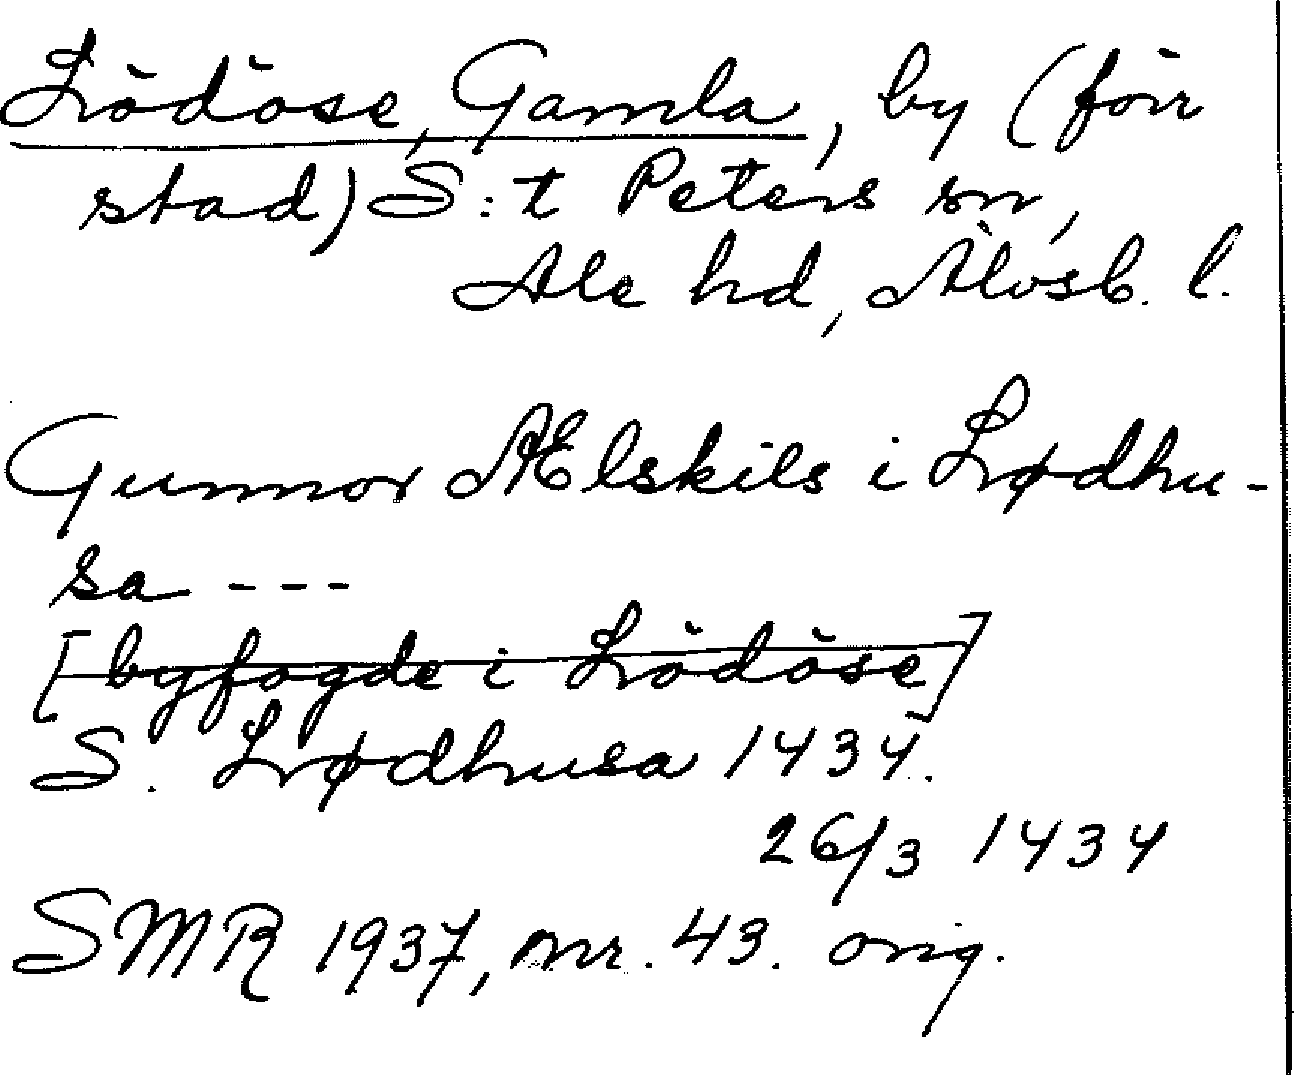 Lödöse, Gamla, by (förr
stad) S:t Peters sn,
Ale hd, Älvsb. l.
Gunnor Ælskils i Lødhu-
sa ---
[byfogde i Lödöse]
S. Lødhusa 1434.
26/3 1434
SMR 1937, nr. 43. orig.